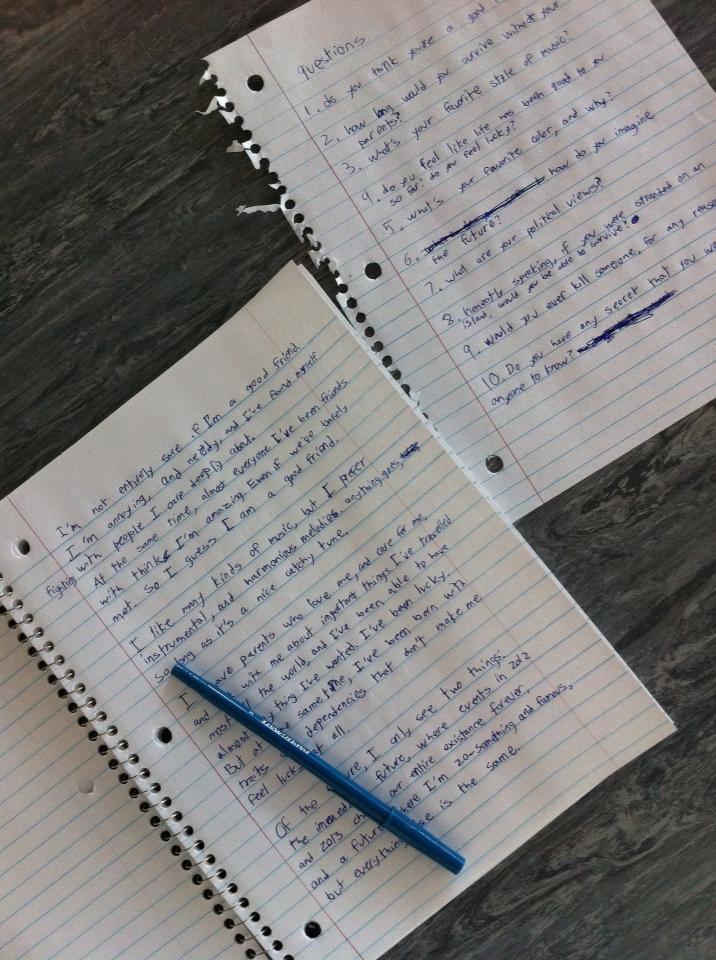 questions
1. do you think you're a good
2. how long would you survive without your
parents?
3. what's your favorite style of music?
4. do you feel like life has been good to you
so far? do you feel lucky?
5. what's your favorite color, and why?
6. how do you imagine
the future?
7. what are your political views?
8. honestly speaking, if you were stranded on an
island, would you be able to survive?
9. would you ever kill someone, for any reason
10. Do you have any secret that you
anyone to know?
I'm not entirely sure if I'm a good friend
I'm annoying, and needy, and I've found myself
fighting with people I care deeply about.
At the same time, almost everyone I've been friends
with thinks I'm amazing. Even if we've barely
met. So I guess I am a good friend.
I like many kinds of music, but I prefer
instrumental, and harmonious melodies. anything goes,
So long as it's a nice catchy tune.
I have parents who love me, and care for me,
and with me about important things I've travelled
most of the world, and I've been able to have
almost thing I've wanted. I've been lucky.
But at same time, I've been born with
traits dependencies that don't make me
feel lucky at all.
Of the future, I only see two things:
the future, where events in 2012
and 2013 our entire existance forever,
and a future where I'm 20-something and famous,
but everything else is the same.
PAPERMATE